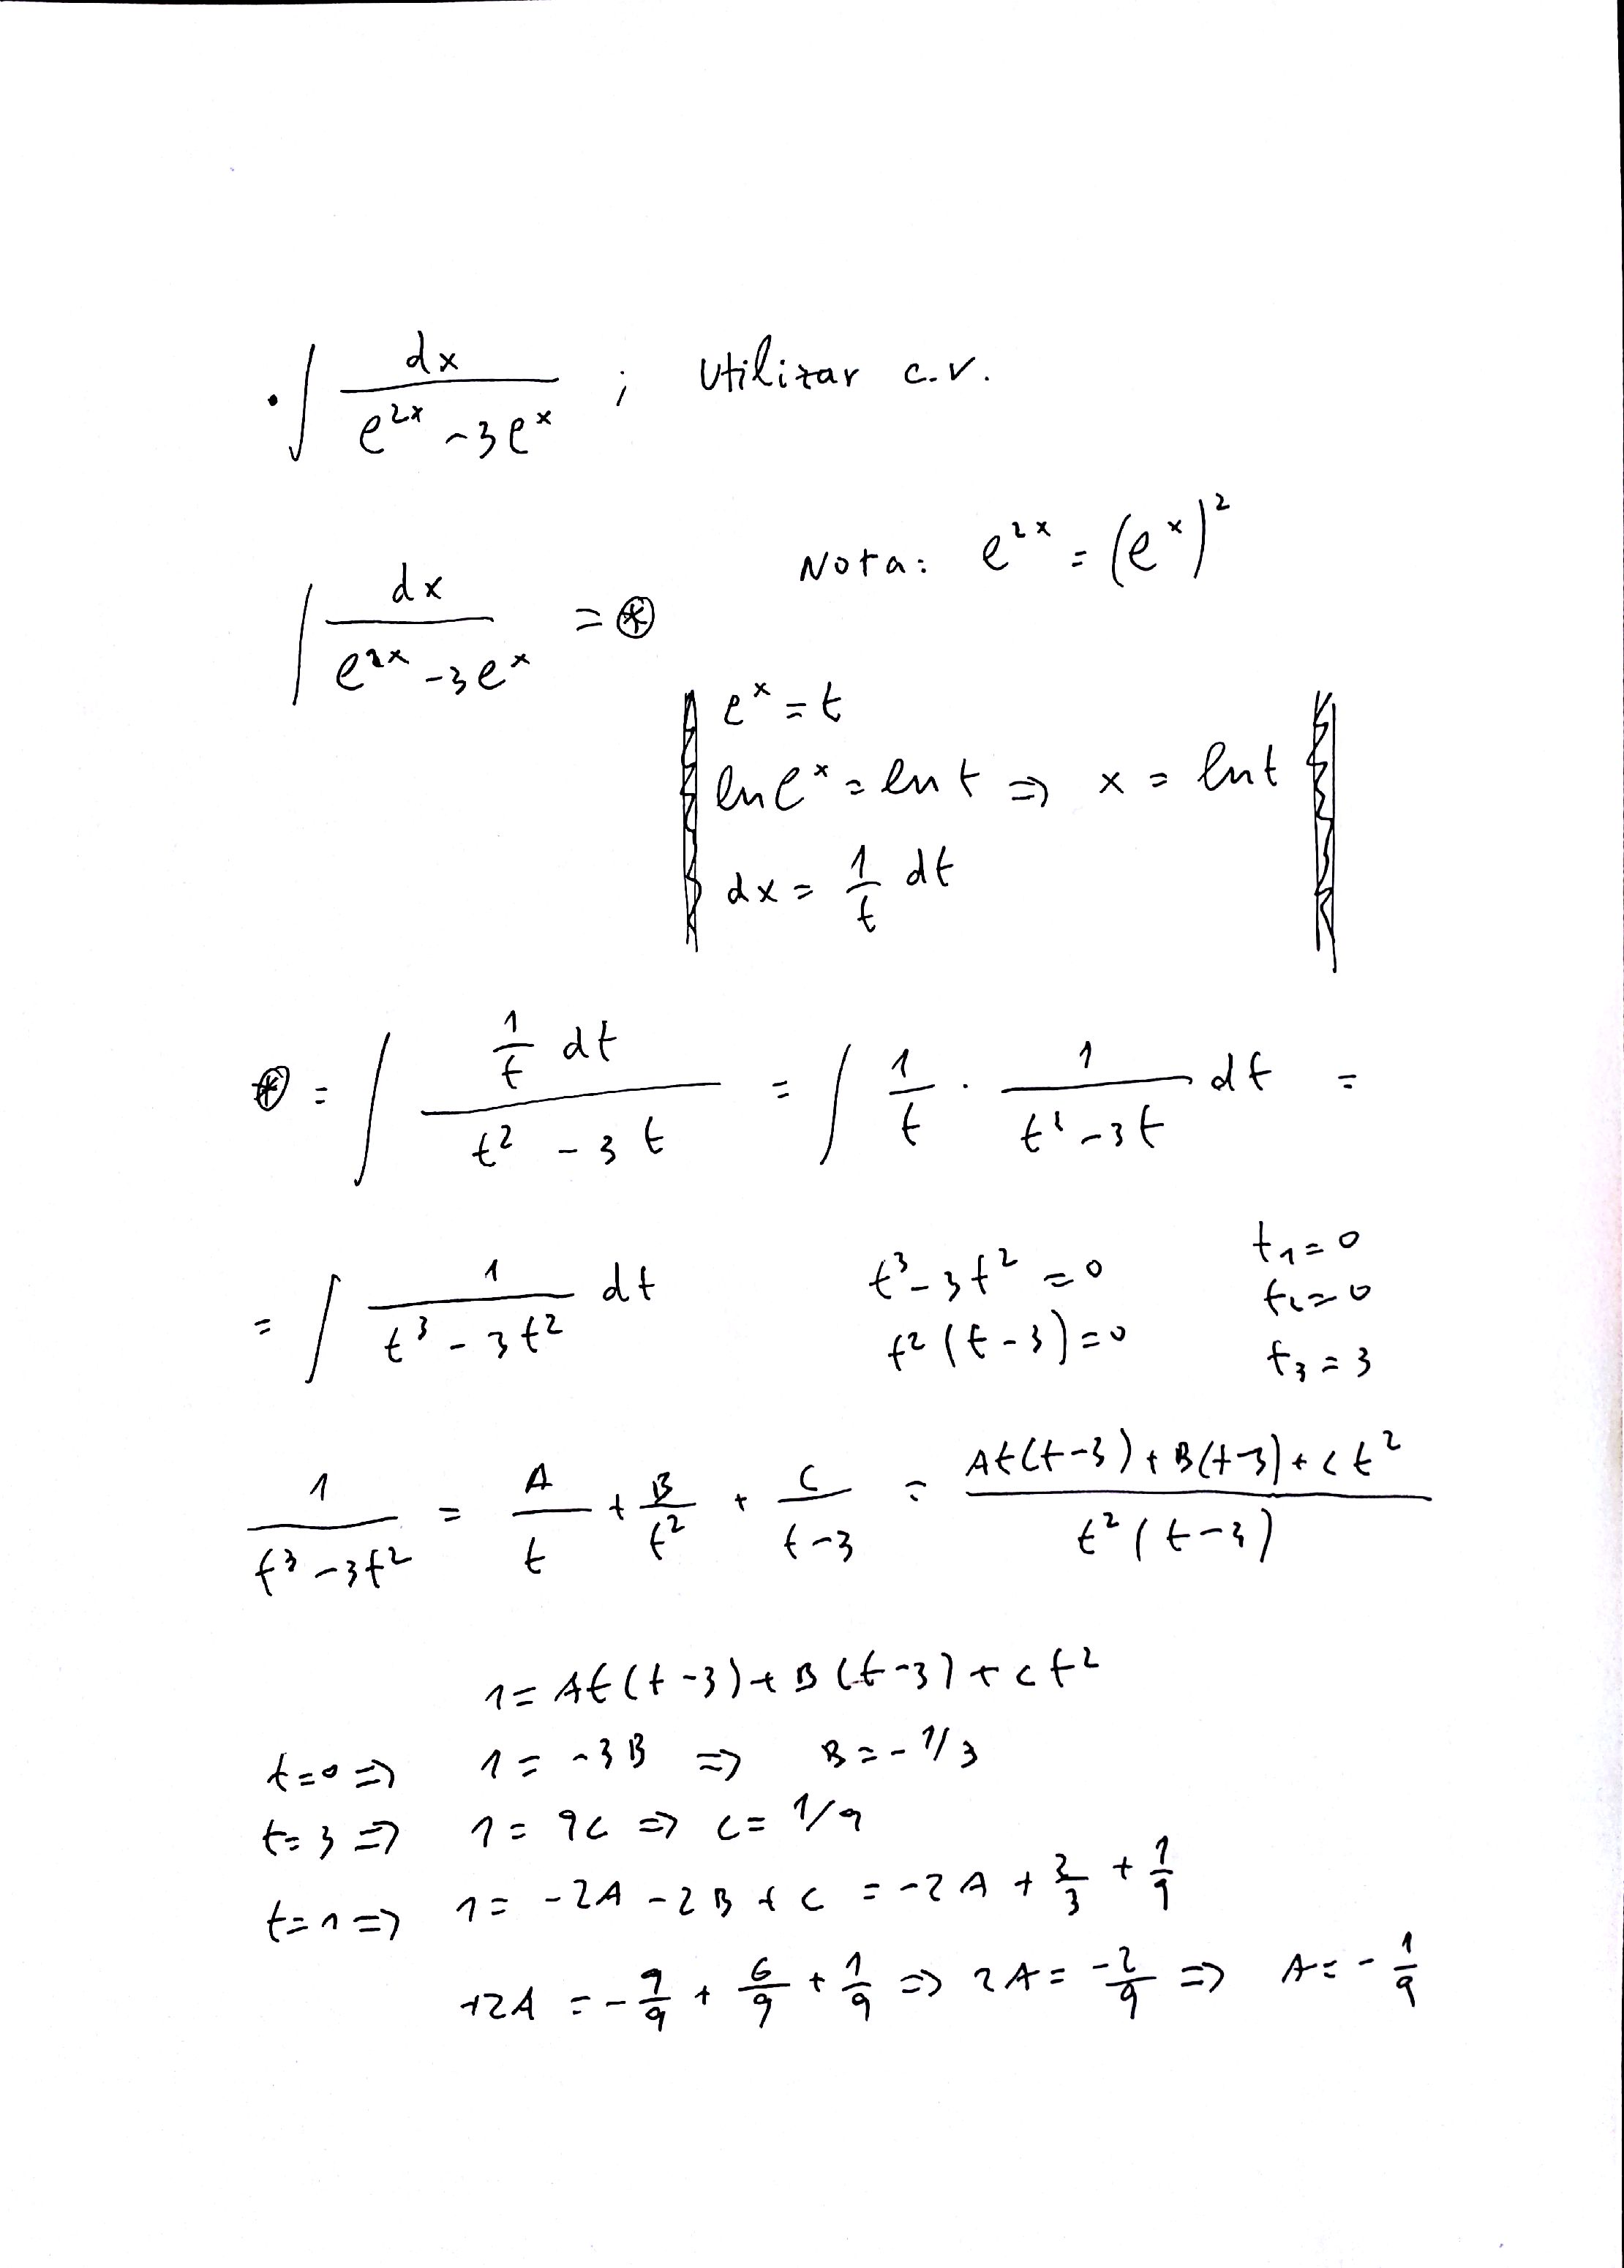 • ∫ dx / (e^{2x} - 3e^x) ; Utilizar c.v.
Nota: e^{2x} = (e^x)^2
∫ dx / (e^{2x} - 3e^x) = ⊛
e^x = t
ln e^x = ln t ⇒ x = ln t
dx = 1/t dt
⊛ = ∫ (1/t dt) / (t^2 - 3t) = ∫ 1/t · 1/(t^2 - 3t) dt =
= ∫ 1/(t^3 - 3t^2) dt
t^3 - 3t^2 = 0
t^2 (t - 3) = 0
t_1 = 0
t_2 = 0
t_3 = 3
1/(t^3 - 3t^2) = A/t + B/t^2 + C/(t-3) = (At(t-3) + B(t-3) + Ct^2) / (t^2(t-3))
1 = At(t-3) + B(t-3) + Ct^2
t=0 ⇒ 1 = -3B ⇒ B = -1/3
t=3 ⇒ 1 = 9C ⇒ C = 1/9
t=1 ⇒ 1 = -2A - 2B + C = -2A + 2/3 + 1/9
+2A = -9/9 + 6/9 + 1/9 ⇒ 2A = -2/9 ⇒ A = -1/9